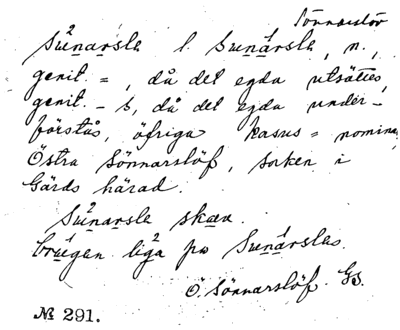 Sönnarslöv
Sŭnarsla l. Sunársla, n.,
genit. =, då det egda utsättes,
genit. - s, då det egda under-
förstås, öfriga kasus = nomina
Östra Sönnarslöf, socken i
Gärds härad.
Sŭnarsla skæu
liga på Sunárslas.
Ö. Sönnarslöf. Gs.
№ 291.